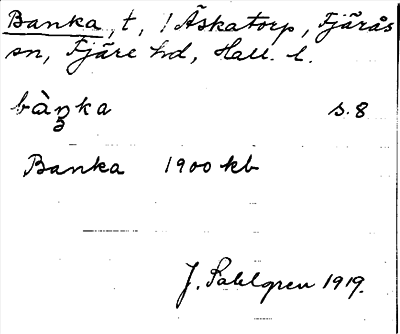 Banka, t, ! Äskatorp, Fjärås
sn, Fjäre hd, Hall. l.
bàŋka s. 8
Banka 1900 kb
J. Sahlgren 1919.